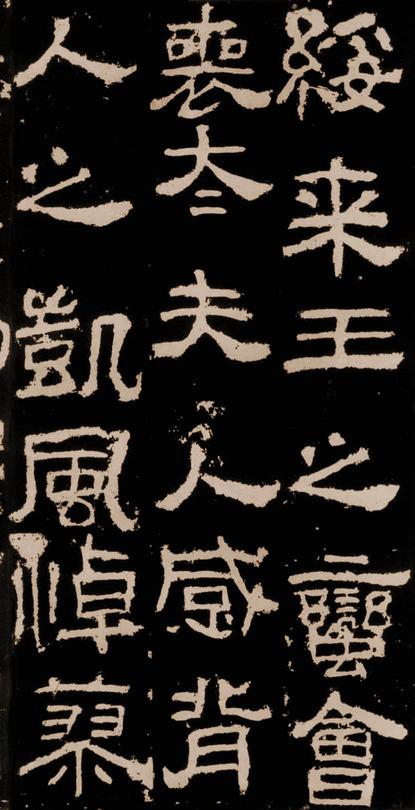 綏来王之蠻會
喪夳夫人感背
人之凱風悼蓼